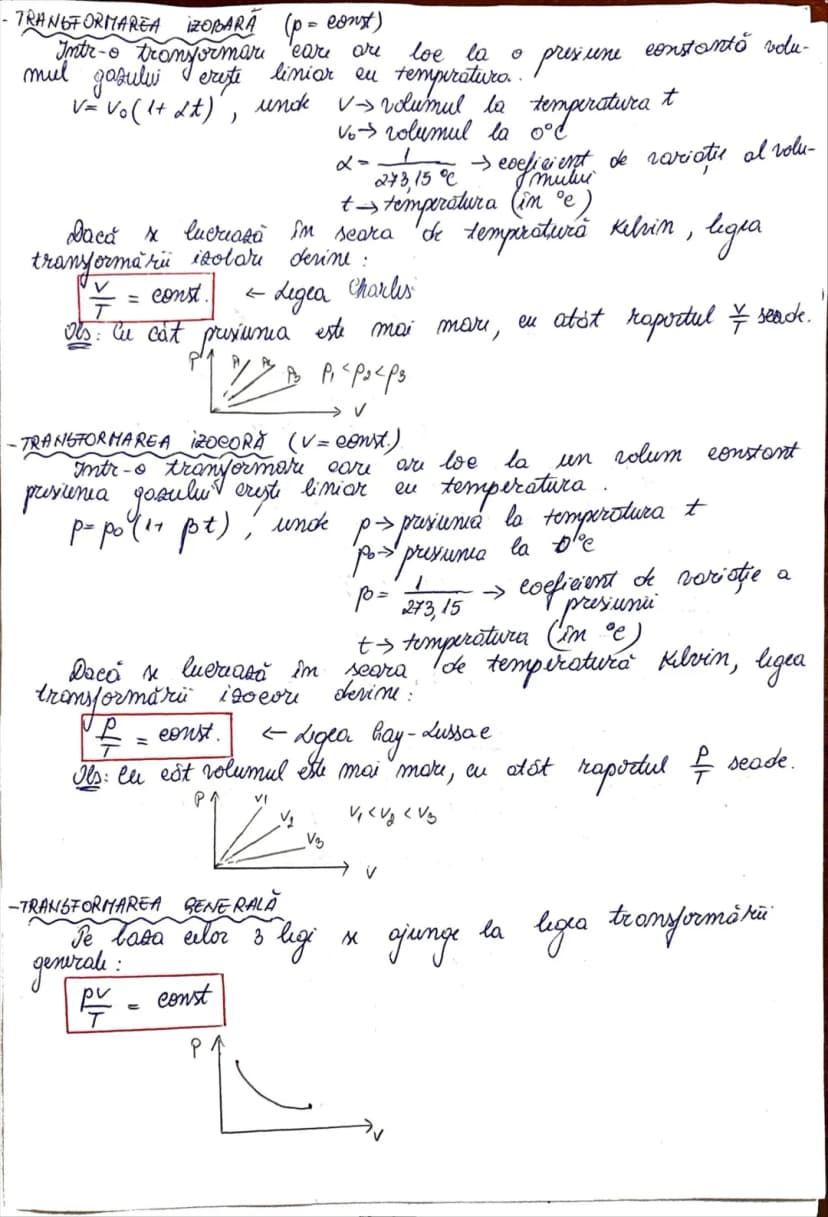 - TRANSFORMAREA IZOBARĂ (p = const)
Intr-o transformare care are loc la o presiune constantă volu-
mul gazului crește liniar cu temperatura.
V = V₀(1 + αt) , unde V → volumul la temperatura t
V₀ → volumul la 0°C
α = 1/273,15 °C → coeficient de variație al volu-
mului
t → temperatura (în °C)
Dacă se lucrează în scara de temperatură Kelvin, legea
transformării izobare devine :
V/T = const. ← Legea Charles
Obs: Cu cât presiunea este mai mare, cu atât raportul V/T scade.
P P₁ P₂ P₃ P₁ < P₂ < P₃
V
- TRANSFORMAREA IZOCORĂ (V = const.)
Intr-o transformare care are loc la un volum constant
presiunea gazului crește liniar cu temperatura .
p = p₀ (1 + βt) , unde p → presiunea la temperatura t
p₀ → presiunea la 0°C
β = 1/273,15 → coeficient de variație a
presiunii
t → temperatura (în °C)
Dacă se lucrează în scara de temperatură Kelvin, legea
transformării izocore devine :
P/T = const. ← Legea Gay-Lussac
Obs: Cu cât volumul este mai mare, cu atât raportul P/T scade.
P V1 V₂ V₃ V₁ < V₂ < V₃
V
- TRANSFORMAREA GENERALĂ
Pe baza celor 3 legi se ajunge la legea transformării
generale :
PV/T = const
P
V